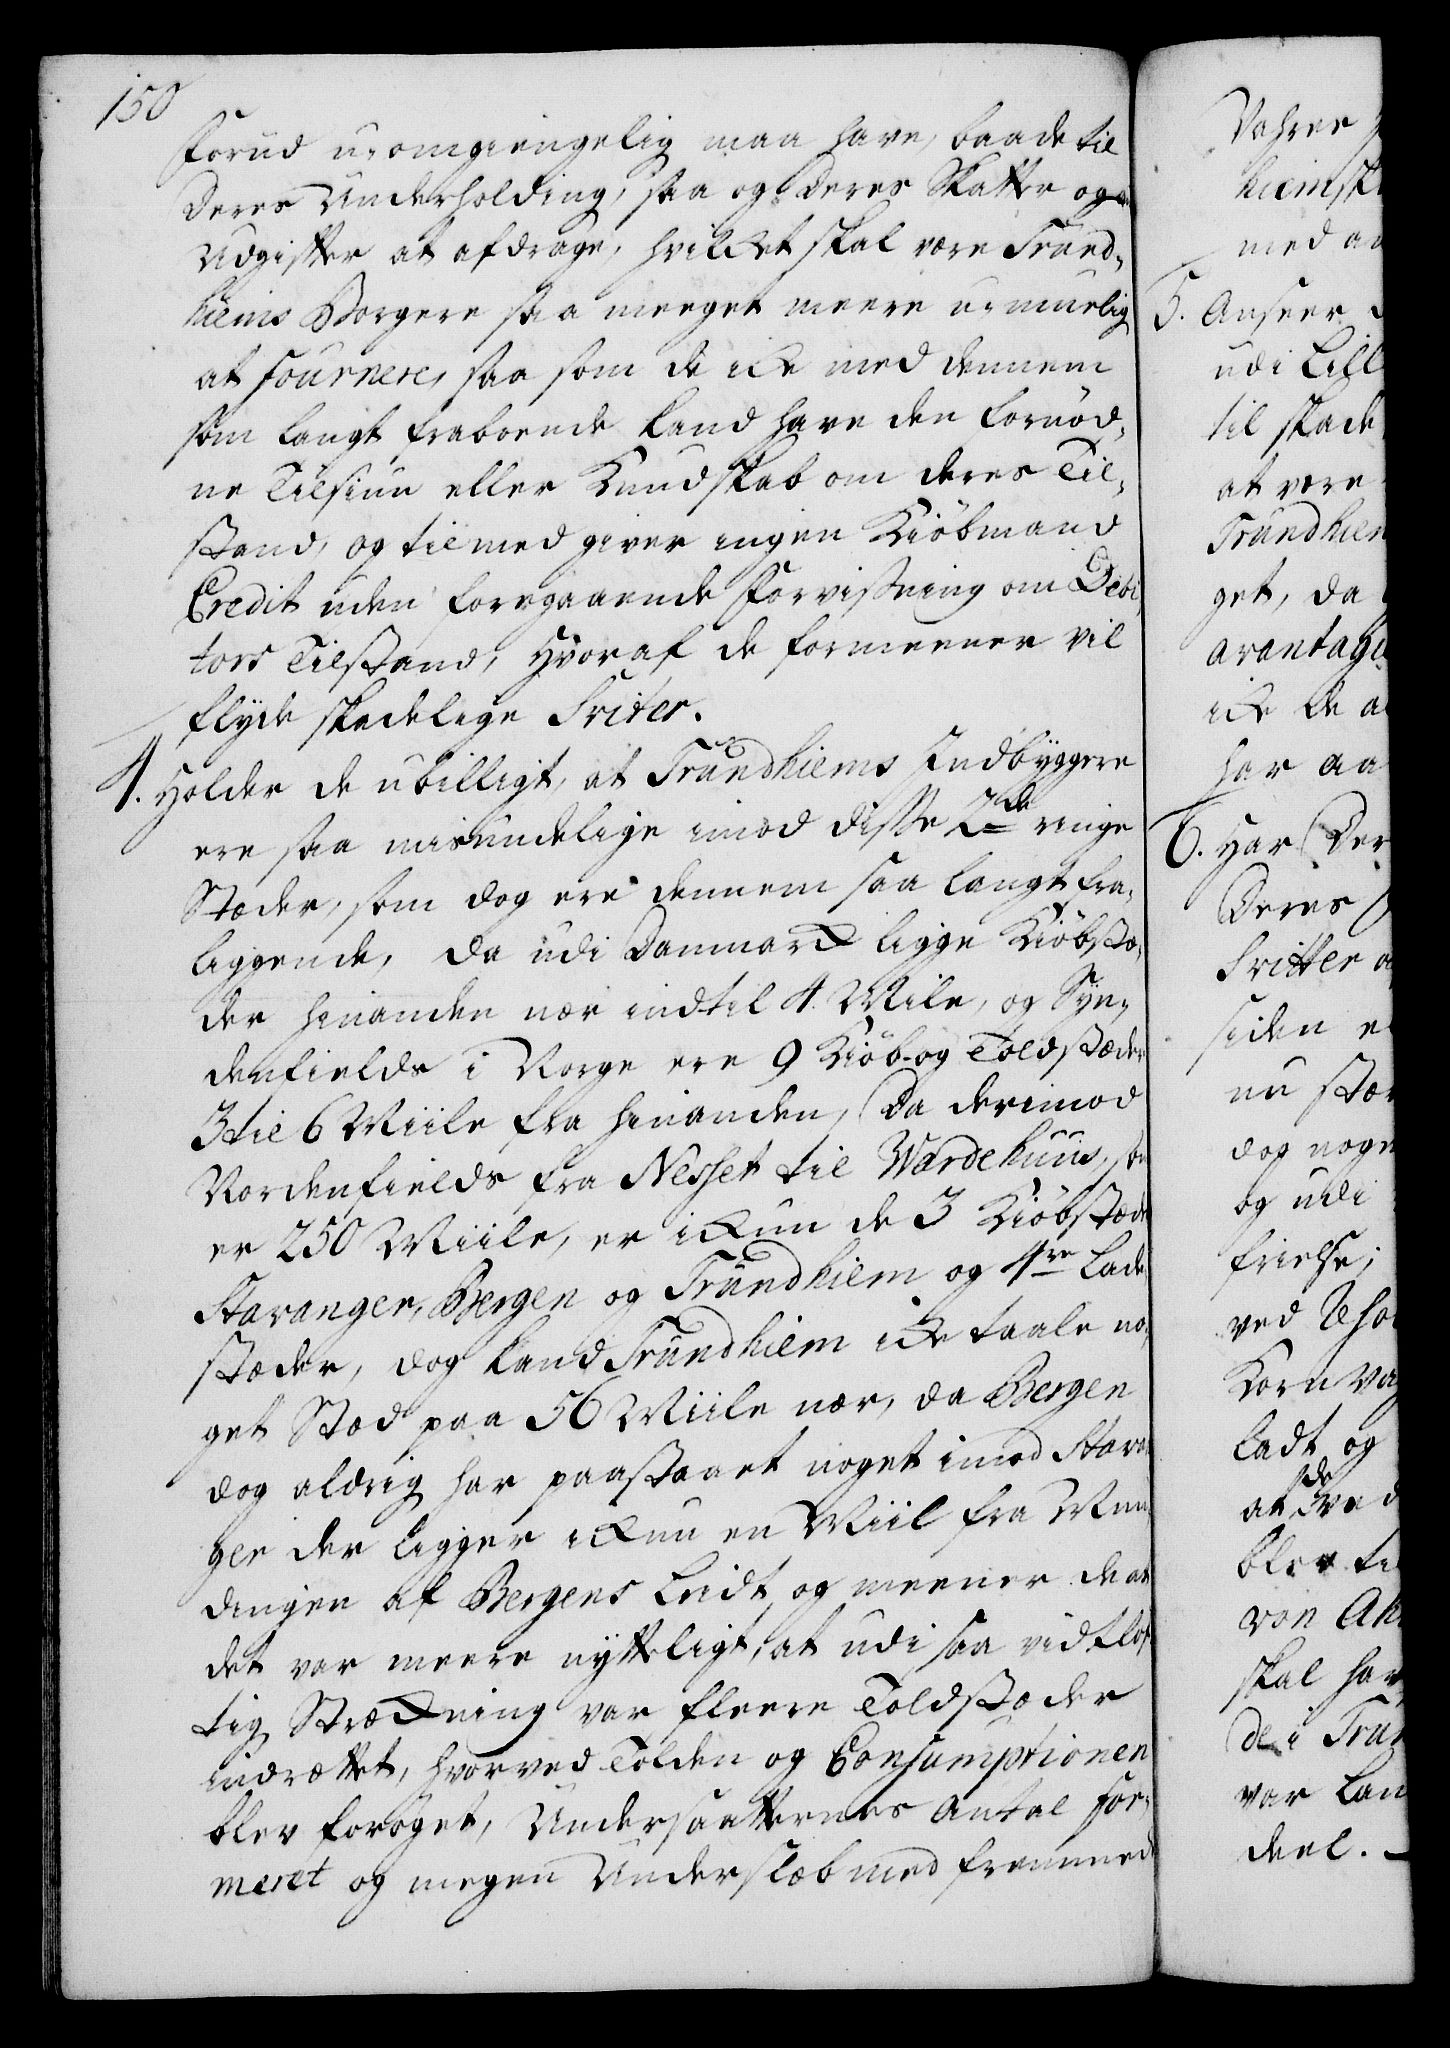 150
forud u-omgiengelig maa have, baade til
deres Underholding, saa og deres Skatter og
Udgifter at afdrage, hvilket skal være Trund-
hiems Borgere saa meeget meere u-muelig
at fournere, saa som de icke med dennem
som langt fraboende kand have den fornød-
ne Tilsiun eller Kundskab om deres Til-
stand, og tilmed giver ingen Kiøbmand
Credit uden foregaaende Forvisning om Debi-
tors Tilstand, hvoraf de formeener vil
flyde skadelige Sviter.
4. Holder de ubilligt, at Trundhiems Indbyggere
ere saa misundelige imod disse 2de ringe
Stæder, som dog ere dennem saa langt fra-
liggende, da udi Danmarck ligge Kiøbstæ-
der hinanden nær indtil 4 Mile, og Syn-
denfields i Norge ere 9 Kiøb- og Toldstæder
3 til 6 Miile fra hinanden, Da derimod
Nordenfields fra Nesset til Wardehuus, som
er 250 Miile, er ickun de 3 Kiøbstæder
Stavanger, Bergen og Trundhiem og 4re Lade-
stæder, dog kand Trundhiem icke taale no-
get Stæd paa 56 Miile nær, da Bergen
dog aldrig har paastaaet noget imod Stavan-
ger der ligger ickun en Miil fra Mun-
dingen af Bergens Leidt, og meener de at
det var meere nytteligt, at udi saa vidtløf-
tig Streckning var fleere Toldstæder
indrettet, hvorved Tolden og Consumptionen
blev forøget, Undersaatternes Antal for-
meret og megen Underslæb med fremmede
Vahrer
hiemsk
med a
5. Anseer
udi Lill
til skade
at være
Trundhiem
get, da
avantage
icke de a
har aa
6. Har Der
Deres
Sritter
siden e
nu stær
dog noge
og udi
frielse;
ved
Korn Va
ladt og
at de
blev ti
von Ah
skal hav
de i Trun
var Lan
deel.